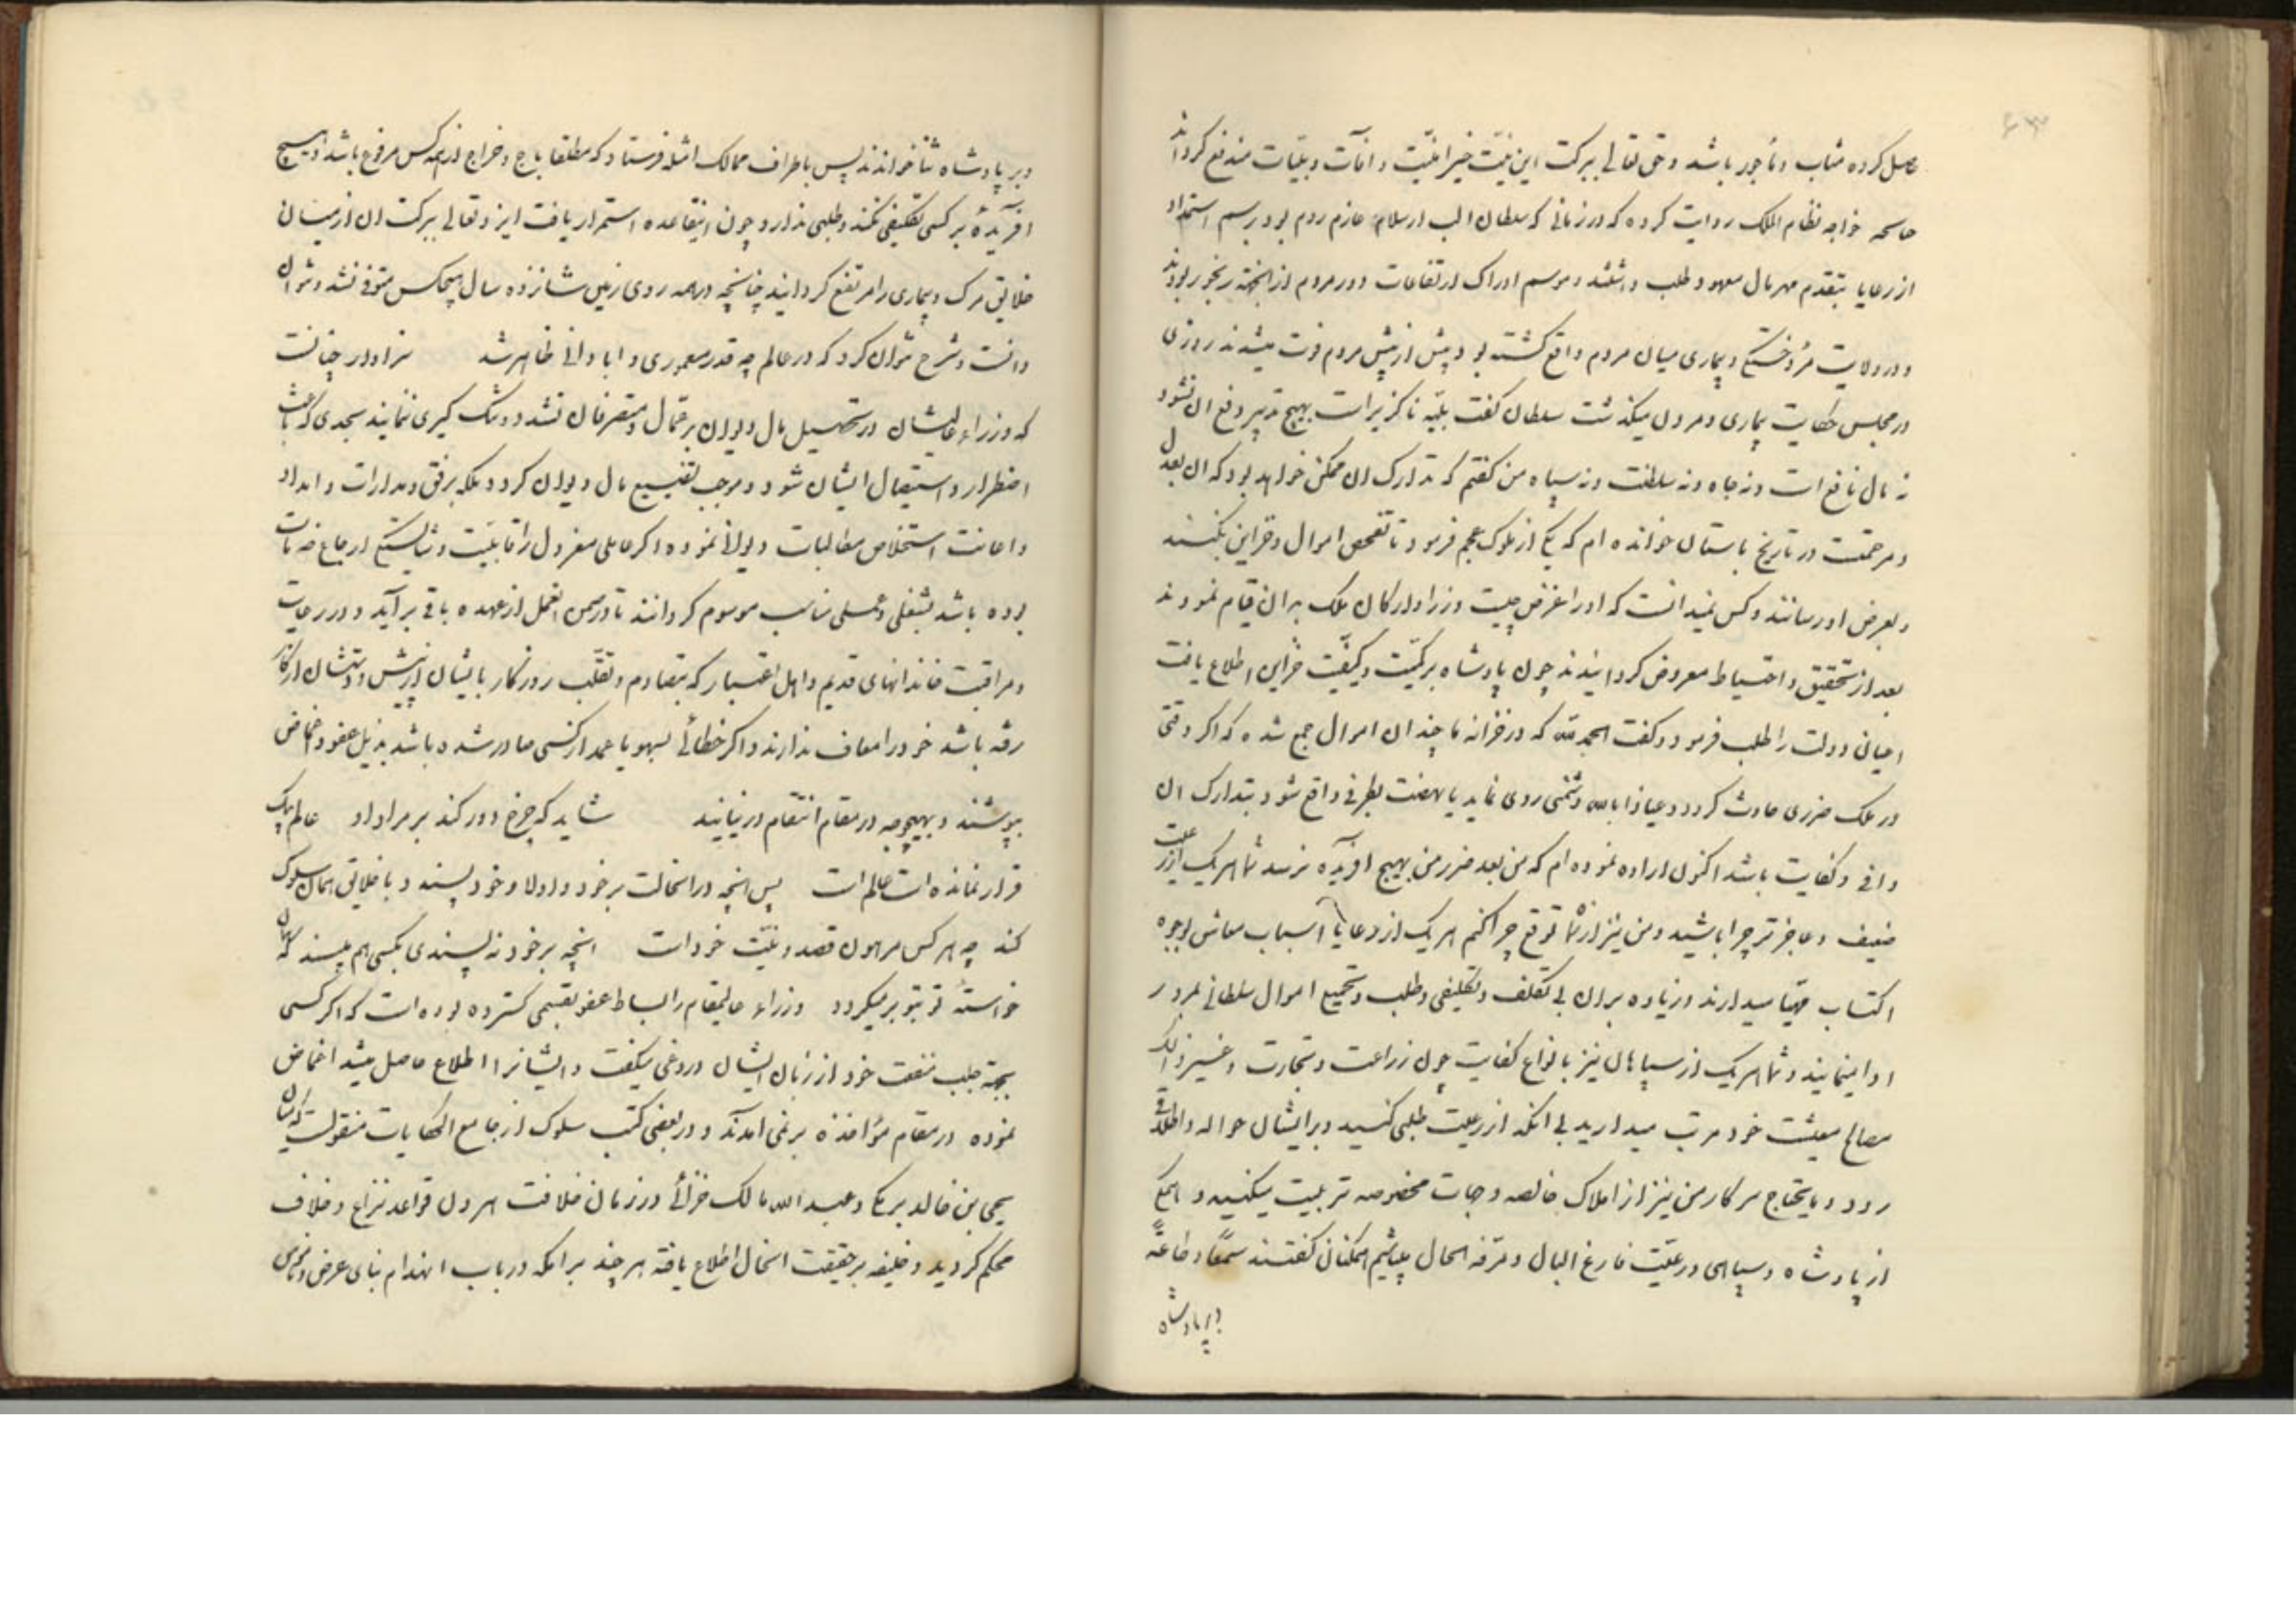 ۶۳
کرده مثاب و مأجور باشد و حق تعالی ببرکت این نیت خیر امنیت و آفات و بلیات مندفع کرداند
خواجه نظام الملک روایت کرده که در زمانی که سلطان الب ارسلان عازم روم بود برسم استمداد
از رعایا بتقدم مهر مال معهود طلب داشتند و موسم ادراک ارتفاعات دور مردم از انجهة رنجور بودند
و در ولایت مرو خستکی و بیماری میان مردم واقع کشته بود پیش از پیش مردم فوت میشدند روزی
در مجلس حکایت بیماری و مردن میکذشت سلطان کفت بلیه ناکزیر است بهیچ تدبیر دفع ان نشود
نه مال نافع است و نه جاه و نه سلطنت و نه سپاه من کفتم که تدارک ان ممکن خواهد بود که ان بعدل
و مرحمتست در تاریخ باستان خوانده ام که یکی از ملوک عجم فرمود تا تفحص اموال و خزاین بکنند
و بعرض او رسانند و کس نمیدانست که او را غرض چیست وزرا و ارکان ملک بدان قیام نمودند
بعد از تحقیق و احتیاط معروض کردانیدند چون پادشاه بر کمیت و کیفیت خزاین اطلاع یافت
اعیان دولت را طلب فرمود و کفت الحمد لله که در خزانه ما چندان اموال جمع شده که اکر وقتی
در ملک ضرری حادث کردد و عیاذا بالله دشمنی روی نماید یا نهضت بطرفی واقع شود بتدارک ان
وافی و کفایت باشد اکنون اراده نموده ام که من بعد ضرر من بهیچ افریده نرسد شما هر یک از رعیت
ضعیف و عاجزتر چرا باشید و من نیز از شما توقع چرا کنم هر یک از رعایا اسباب معاش بوجوه
اکتساب مهیا میدارند و زیاده بر ان بی تکلف و تکلیفی و طلب و تجمیع اموال سلطانی بمرور
ادا مینمایند و شما هر یک از سپاهان نیز بانواع کفایت چون زراعت و تجارت و غیر ذالک
مصالح معیشت خود مرتب میدارید بی انکه از رعیت طلبی کنید و بر ایشان حواله و اطلاق
رود و مایحتاج سرکار من نیز از املاک خالصه و جهات مخصوصه تربیت میکنید و همکی
از پادشاه و سپاهی و رعیت فارغ البال و مرفه الحال باشیم همکنان کفتند سمعًا و طاعةً
و بر پادشاه
و بر پادشاه ثنا خواندند پس باطراف ممالک امثله فرستاد که مطلقا باج و خراج از همه کس مرفوع باشد و هیچ
افریده بر کسی تکلیفی نکند و طلبی ندارد و چون اینقاعده استمرار یافت ایزد تعالی ببرکت ان از میان
خلایق مرک و بیماری را مرتفع کردانید چنانچه در همه روی زمین شانزده سال هیچکس متوفی نشد و توان
دانست و شرح توان کرد که در عالم چه قدر معموری و ابادانی ظاهر شد سزاوار چنانست
که وزراء عالیشان در تحصیل مال دیوان بر عمال و متصرفان تشدد و تنک کیری ننمایند بحدی که باعث
اضطرار و استیصال ایشان شود و موجب تضییع مال دیوان کردد بلکه برفق و مدارات و امداد
و اعانت استخلاص مطالبات دیوانی نموده اکر عاملی معزول را قابلیت و شایستکی ارجاع خدمات
بوده باشد بشغلی و عملی مناسب موسوم کردانند تا در ضمن العمل از عهده باقی برآید و در رعایت
و مراقبت خاندانهای قدیم و اهل اعتبار که بتصادم و تقلب روزکار بایشان و دستشان از کار
رفته باشد خود را معاف ندارند و اکر خطائی بسهو یا عمد از کسی صادر شده باشد بذیل عفو و اغماض
بپوشند و بهیچوجه در مقام انتقام در نیایند شاید که چرخ دور کند بر مراد او عالم بیک
قرار نمانده است عالم است پس انچه در انحالت بر خود روا دارد و خود پسندد با خلایق همان سلوک
کند چه هر کس مرهون قصد و نیت خود است انچه بر خود نپسندی بکسی هم مپسند که همان
خواستهٔ تو بتو برمیکردد وزراء عالیمقام را بساط عفو بقسمی کسترده بوده است که اکر کسی
بجهة جلب منفعت خود از زبان ایشان دروغی میکفت و ایشانرا اطلاع حاصل میشد اغماض
نموده در مقام مؤاخذه برنمی امدند و در بعضی کتب سلوک از جامع الحکایات منقولست که میان
یحیی بن خالد برمکی و عبد الله مالک خزائی در زمان خلافت هرون قواعد نزاع و خلاف
محکم کردید و خلیفه بر حقیقت انحال اطلاع یافته هر چند بر انکه در باب انهدام بنای عرض و ناموس